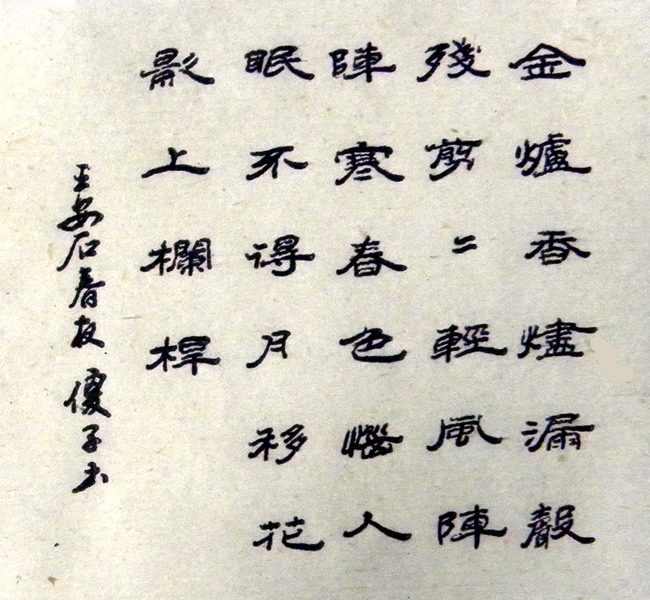 金爐香燼漏聲
殘剪二輕風陣
陣寒春色惱人
眠不得月移花
影上欄桿
王安石春夜 優子书